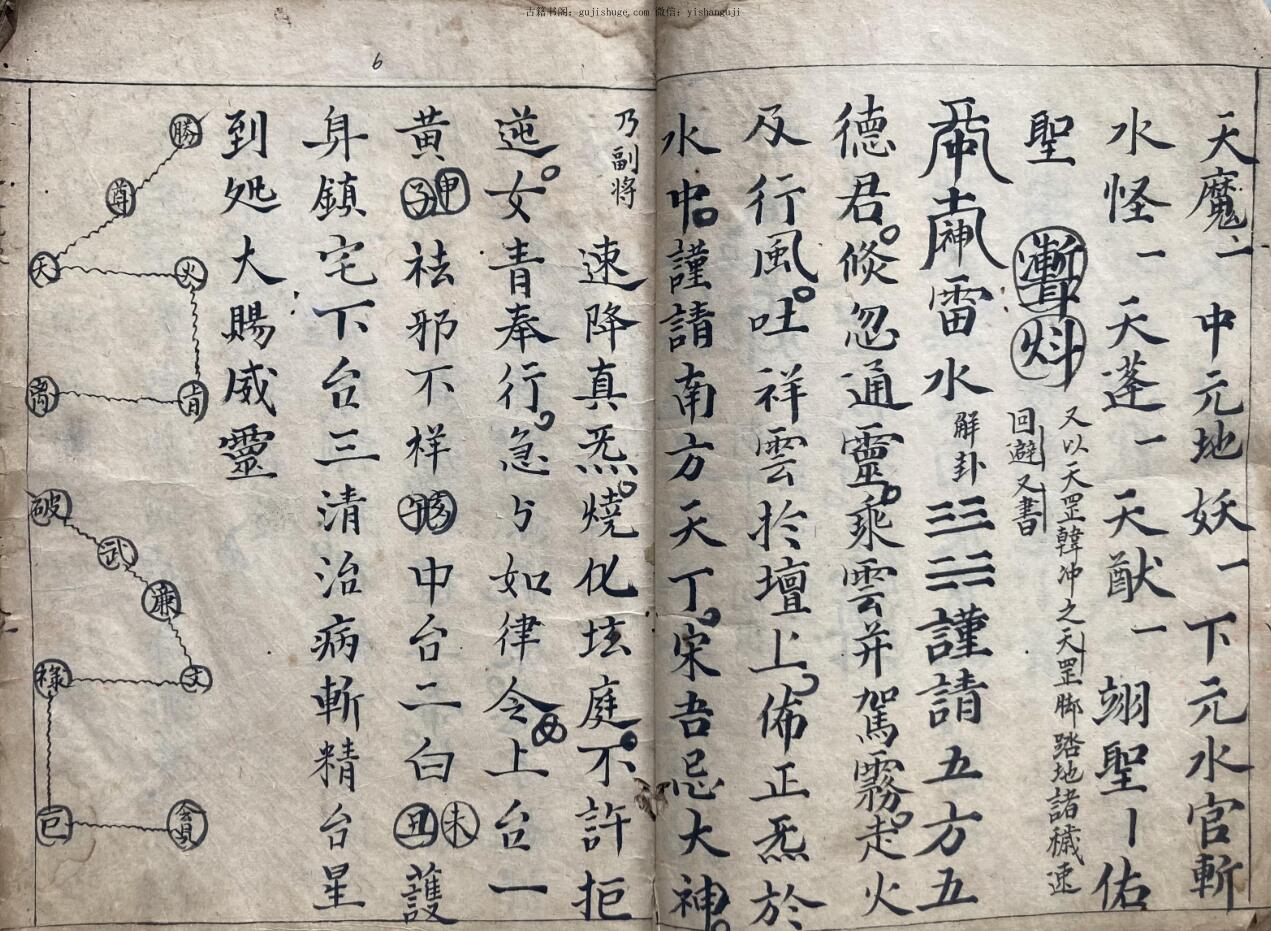 古籍书阁：gujishuge.com 微信：yishanguji
天魔二 中元地妖一 下元水官斬
水怪一 天蓬一 天猷一 翊聖丨佑
聖
又以天罡韓冲之天罡脚踏地諸穢速
回避又書
雷水
解卦
謹請五方五
德君倐忽通靈乘雲并駕霧走火
及行風吐祥雲扵壇上佈正炁於
水中謹請南方天丁宋吾忌大神
乃副将
速降真炁燒化坛庭不許拒
逆女青奉行急如律令上台一
黄子申祛邪不样中台二白丑未護
身鎮宅下台三清治病斬精台星
到処大賜威靈
6
勝
尊
天
火
破
武
廉
文
禄